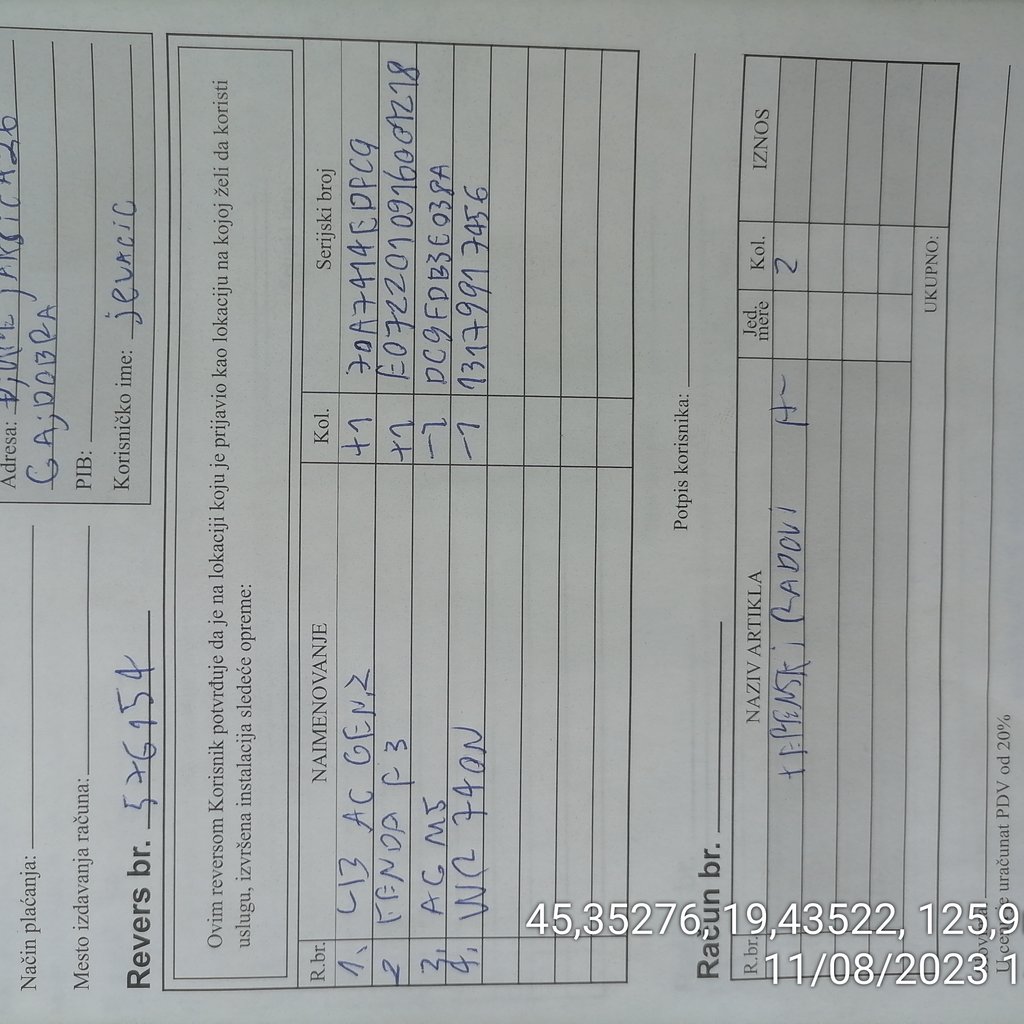 Način plaćanja:
Mesto izdavanja računa:
Adresa:
GAJDOBRA
PIB:
Korisničko ime: jevacic
Revers br. 576954
Ovim reversom Korisnik potvrđuje da je na lokaciji koju je prijavio kao lokaciju na kojoj želi da koristi
uslugu, izvršena instalacija sledeće opreme:
R.br. NAIMENOVANJE Kol. Serijski broj
1. LB AC GEN2 +1 70A7414EDFC9
2 TENDA F3 +1 E0722010916001218
3, AG M5 -1 DC9FDB3E038A
4, WR 740N -1 1317991 7456
Potpis korisnika:
Račun br.
R.br. NAZIV ARTIKLA Jed. mere Kol. IZNOS
TERENSKI RADOVI 2
UKUPNO:
U cenu je uračunat PDV od 20%
45,35276, 19,43522, 125,9
11/08/2023 1